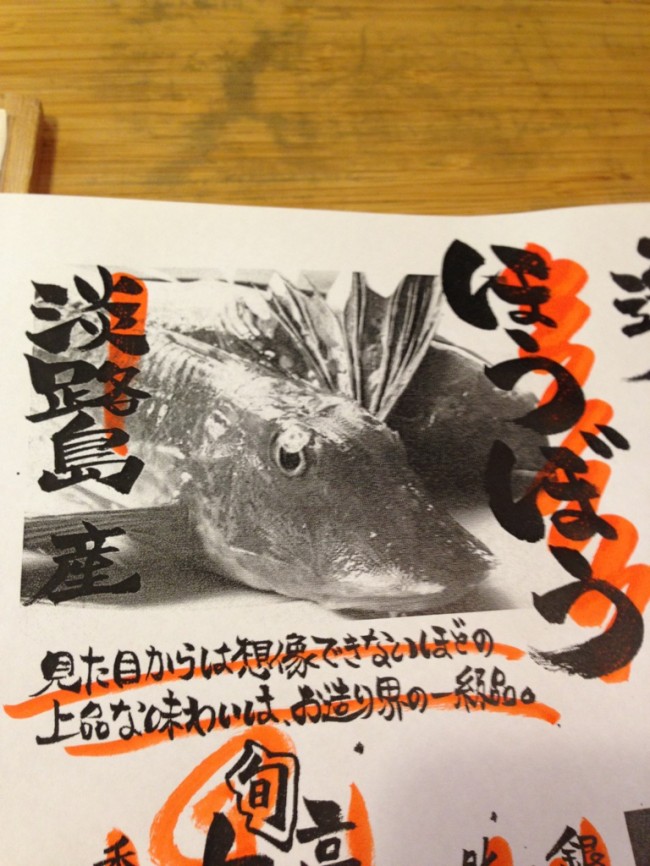 ほうぼう
淡路島産
見た目からは想像できないほどの
上品な味わいは、お造り界の一級品。
旬
高
香
銀